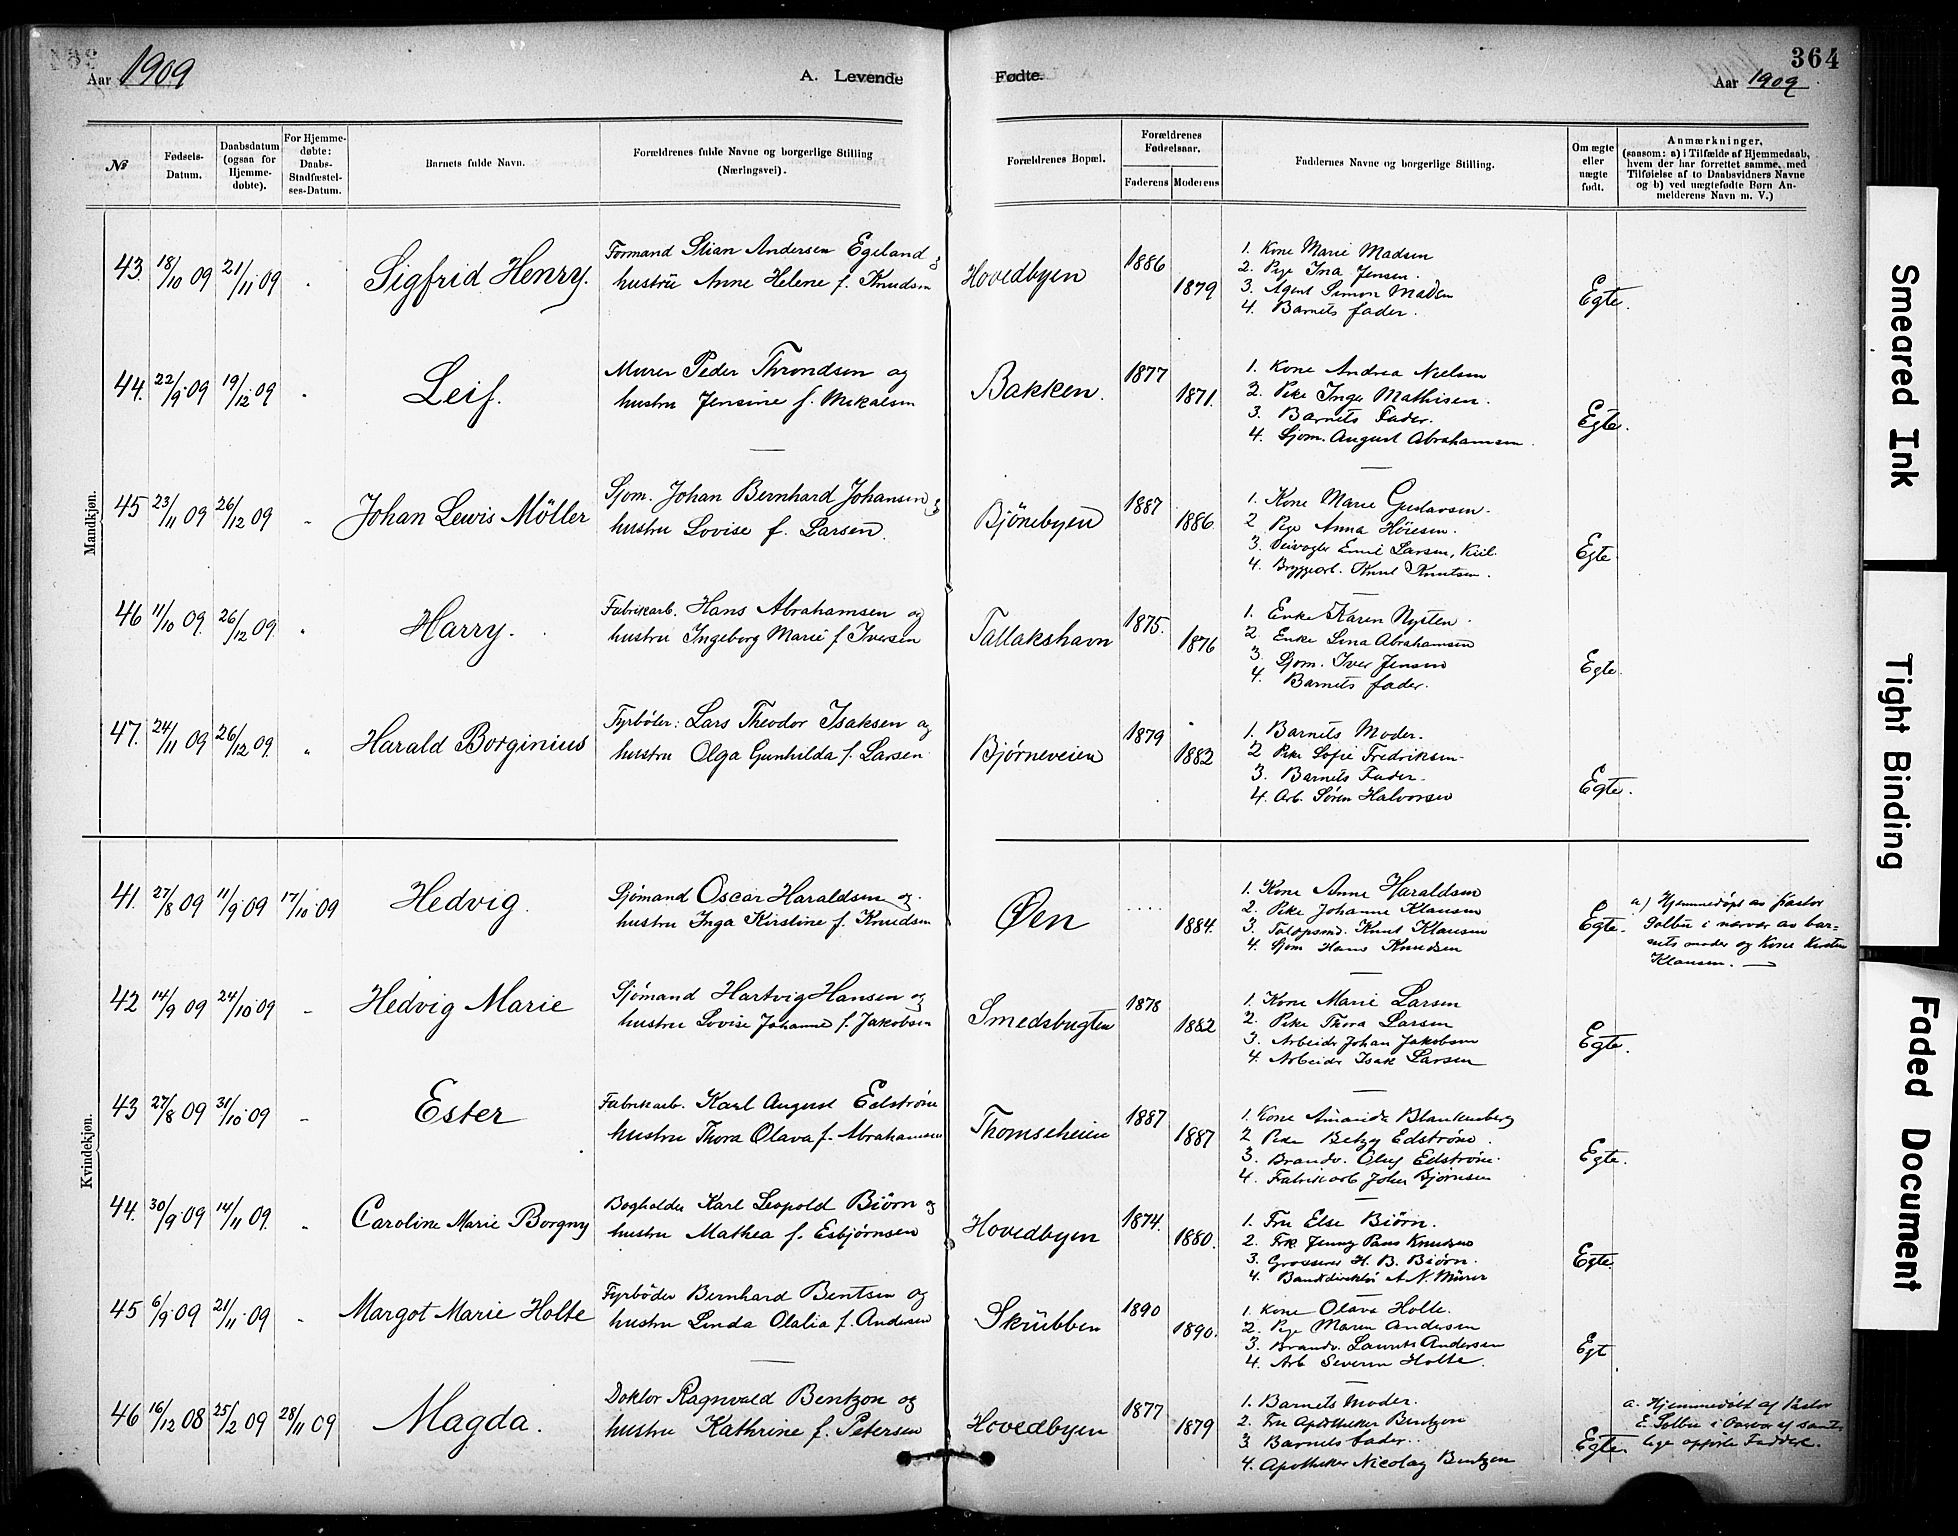 364
Aar 1909
A. Levende Fødte.
Aar 1909
№
Fødsels-Datum.
Daabsdatum (ogsaa for Hjemme-døbte).
For Hjemme-døbte: Daabs-Stadfæstel-ses-Datum.
Barnets fulde Navn.
Forældrenes fulde Navne og borgerlige Stilling (Næringsvei).
Forældrenes Bopæl.
Forældrenes Fødselsaar.
Faderens Moderens
Faddernes Navne og borgerlige Stilling.
Om ægte eller uægte født.
Anmærkninger,
(saasom: a) i Tilfælde af Hjemmedaab,
hvem der har forrettet samme, med
Tilføielse af to Daabsvidners Navne
og b) ved uægtefødte Børn An-
melderens Navn m. V.)
Mandkjøn.
43. 18/10 09 21/11 09 Sigfrid Henry.
Formand Stian Andersen Egeland &
hustru Anne Helene f. Knudsen
Hovedbyen 1886 1879
1. Kone Marie Madsen
2. Pige Ina Jensen.
3. Agent Simon Madsen
4. Barnets fader.
Egte.
44. 22/9 09 19/12 09 Leif.
Murer Peder Throndsen og
hustru Jensine f. Mikalsen
Bakken. 1877 1871.
1. Kone Andrea Nielsen
2. Pike Inga Mathisen.
3. Barnets Fader.
4. Sjøm. August Abrahamsen.
Egte.
45 23/11 09 26/12 09 Johan Lewis Möller
Sjøm. Johan Bernhard Johansen &
hustru Lovise f. Larsen.
Bjönebyen 1887 1886
1. Kone Marie Gustavsen.
2. Pige Anna
3. Emil Larsen, Kiil.
4. Bryggearb. Knut Knutsen.
Egte
46 11/10 09. 26/12 09. Harry.
Fabrikarb. Hans Abrahamsen og
hustru Ingeborg Marie f. Iversen
Tallakshavn 1875. 1876
1. Enke Karen Nysten.
2. Enke Lina Abrahamsen
3. Sjøm. Iver Jensen
4. Barnets fader.
Egte.
47. 24/11 09 26/12 09. Harald Borginius
Fyrbøter: Lars Theodor Isaksen og
hustru Olga Gunhilda f. Larsen
Bjørneveien 1879 1882
1. Barnets Moder.
2. Pike Sofie Fredriksen.
3. Barnets Fader.
4. Arb. Søren Halvorsen
Egte.
Kvindekjøn.
41. 27/8 09 11/9 09 17/10 09 Hedvig.
Sjømand Oscar Haraldsen og.
hustru Inga Kirstine f. Knudsen
Øen 1884.
1. Kone Anne Haraldsen
2. Pike Johanne Klausen
3. Knut Klausen
4. Sjøm Hans Knudsen
Egte.
a) Hjemmedøpt av Pastor
Solbu i nærvær av bar-
nets moder og Kone Kirsten
Klausen.
42 14/9 09 24/10 09 Hedvig Marie
Sjömand Hartvig Hansen og
hustru Lovise Johanne f. Jakobsen
Smedsbugten 1878 1882
1. Kone Marie Larsen
2. Pike Thora Larsen
3. Arbeider Johan Jakobsen
4. Arbeider Isak Larsen
Egte.
43 27/8 09 31/10 09 Ester
Fabrikarb. Karl August Edström
hustru Thora Olava f. Abrahamsen
Thomseheien 1887 1887
1. Kone Amanda Blankenberg
2 Pike Betzy Edström.
3. Brandv. Oluf Edström.
4. Fabrikarb Johan Bjørnsen
Egte.
44. 30/9 09 14/11 09. Caroline Marie Borgny
Bogholder Karl Leopold Biörn og
hustru Mathea f. Esbjørnsen
Hovedbyen 1874. 1880.
1. Fru Else Biörn.
2. Frk. Jenny Knutzen
3. Grosserer H. B. Biörn.
4. Bankdirektør A N. Mürer
Egte.
45 6/9 09 21/11 09 Margot Marie Holte
Fyrbøder Bernhard Bentsen og
hustru Linda Olalia f. Andersen
Skrübben 1890 1890.
1. Kone Olava Holte.
2. Pige Maren Andersen
3. Brandv. Laurits Andersen
4. Arb Severin Holte.
Egt
46 16/12 08 25/2 09 28/11 09 Magda.
Doktor Ragnvald Bentzon og
hustru Kathrine f. Petersen
Hovedbyen 1877 1879
1. Barnets Moder.
2. Fru Apotheker Bentzon
3. Barnets fader.
4. Apotheker Nicolay Bentzen
Egte.
a. Hjemmedøbt af Pastor
E. Solbu i Overvær af samt-
lige opførte Faddere.
Smeared Ink
Tight Binding
Faded Document